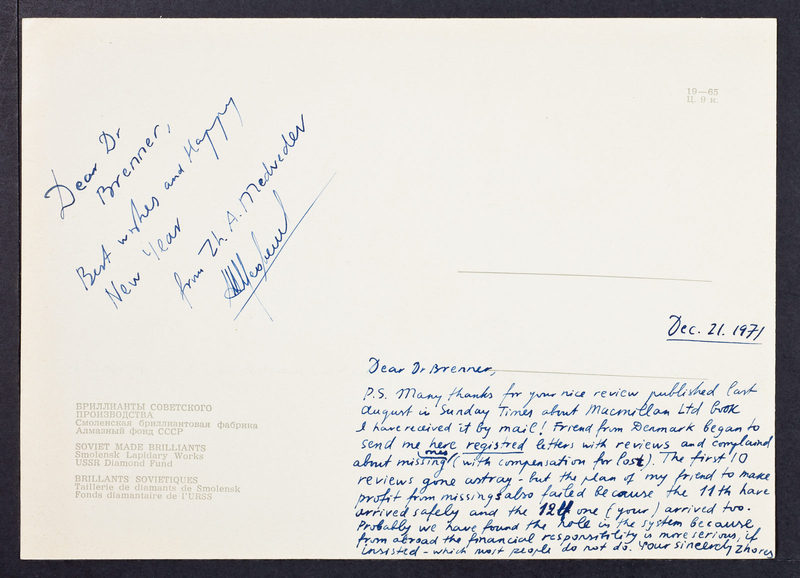 19—65
Ц. 9 к.
Dear Dr
Brenner,
Best wishes and Happy
New Year
from Zh. A. Medvedev
Dec. 21. 1971
Dear Dr Brenner,
P.S. Many thanks for your nice review published last
August in Sunday Times about Macmillan Ltd book
I have received it by mail! Friend from Denmark began to
send me here registred letters with reviews and complained
about missing ones (with compensation for lost). The first 10
reviews gone astray - but the plan of my friend to make
profit from missings also failed because the 11th have
arrived safely and the 12th one (your) arrived too.
Probably we have found the hole in the system because
from abroad the financial responsibility is more serious, if
insisted - which most people do not do. Your sincerely Zhores
БРИЛЛИАНТЫ СОВЕТСКОГО
ПРОИЗВОДСТВА
Смоленская бриллиантовая фабрика
Алмазный фонд СССР
SOVIET MADE BRILLIANTS
Smolensk Lapidary Works
USSR Diamond Fund
BRILLANTS SOVIETIQUES
Taillerie de diamants de Smolensk
Fonds diamantaire de l'URSS